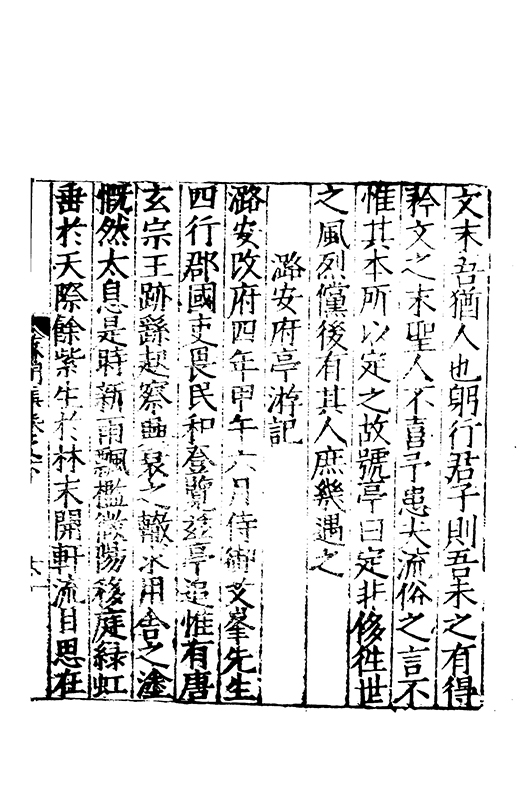 文末吾猶人也躬行君子則吾未之有得
矜文之末聖人不喜予患夫流俗之言不
惟其本所以定之故號亭曰定非修徃世
之風烈儻後有其人庶幾遇之
潞安府亭游記
潞安改府四年甲午六月侍御文峯先生
四行郡國吏畏民和登覽茲亭追惟有唐
玄宗王跡繇起察幽哀之轍求用舍之塗
慨然太息是時新雨飄檻微陽移庭綠虹
垂於天際餘紫生於林末開軒流目思在